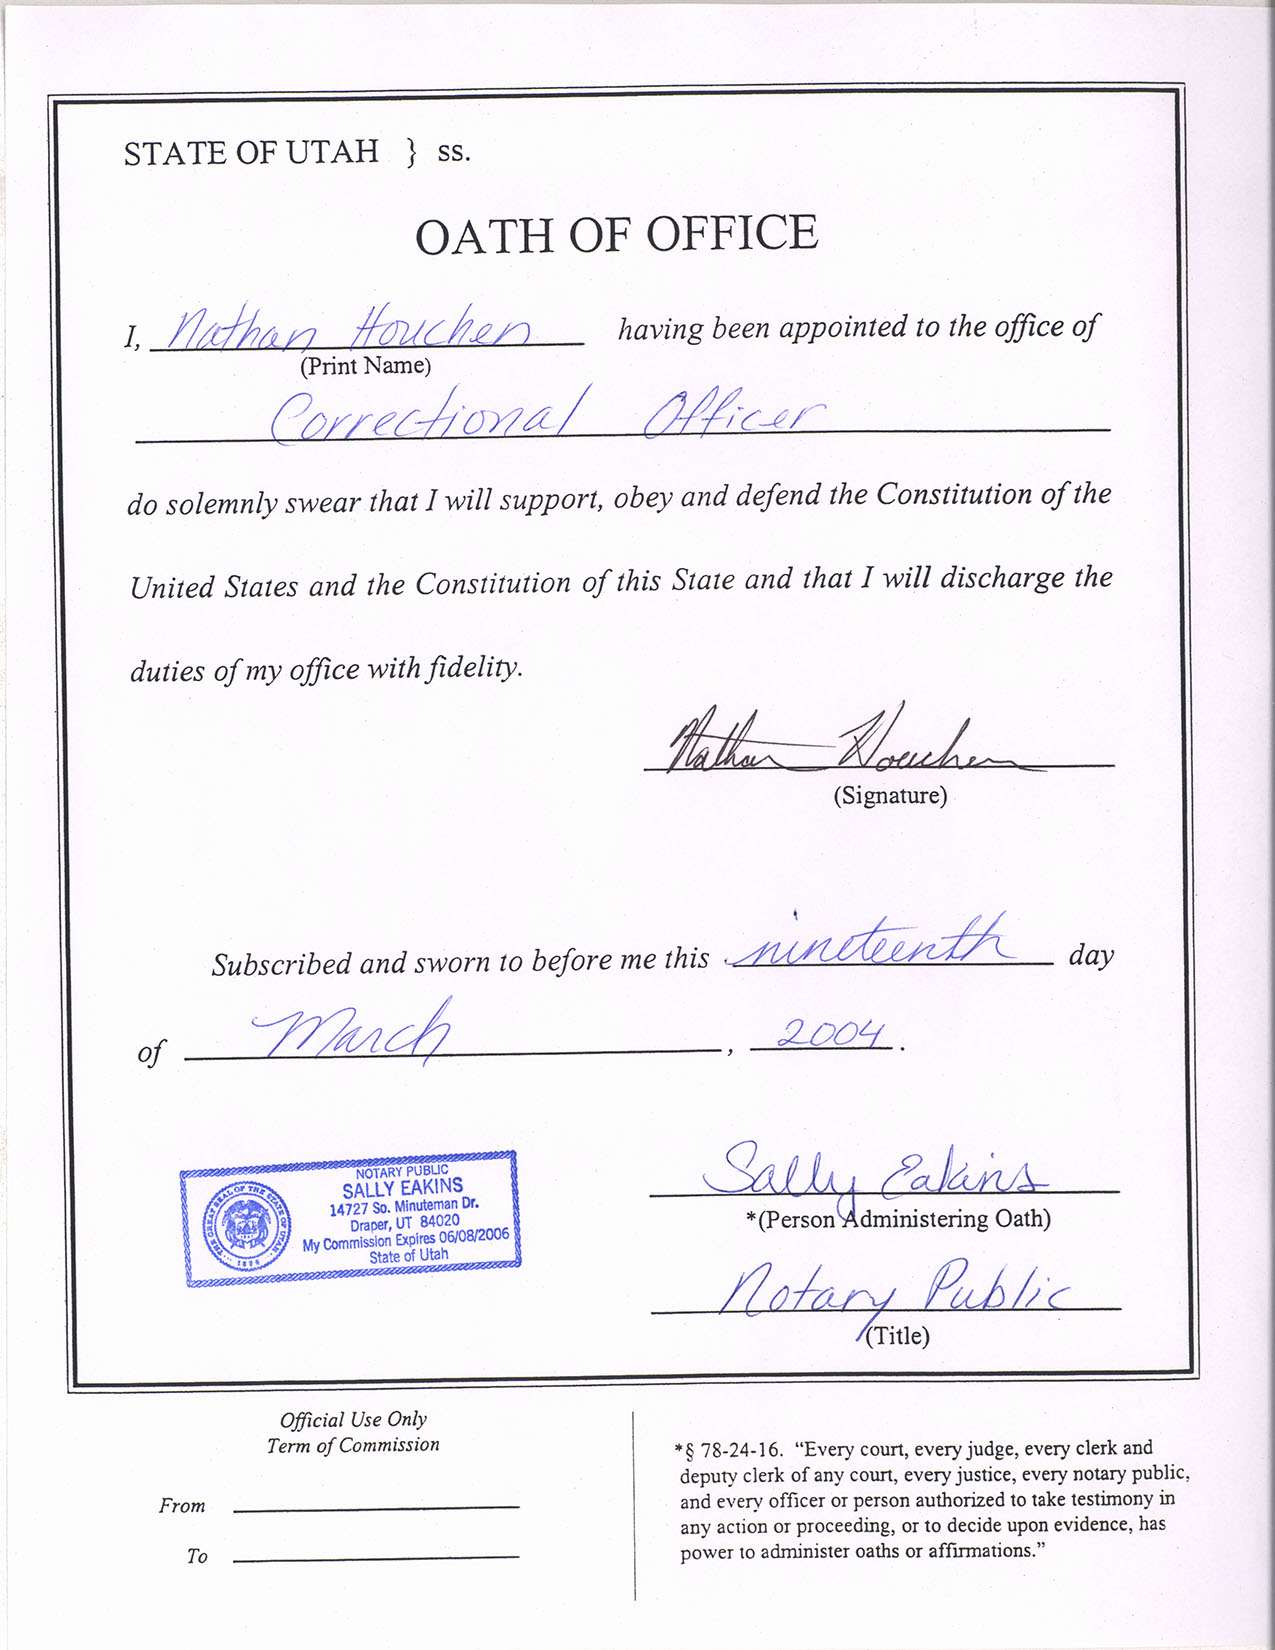 STATE OF UTAH } ss.
OATH OF OFFICE
I, Nathan Houchen having been appointed to the office of
(Print Name)
Correctional Officer
do solemnly swear that I will support, obey and defend the Constitution of the
United States and the Constitution of this State and that I will discharge the
duties of my office with fidelity.
Nathan Houchen
(Signature)
Subscribed and sworn to before me this nineteenth day
of March, 2004.
NOTARY PUBLIC
SALLY EAKINS
14727 So. Minuteman Dr.
Draper, UT 84020
My Commission Expires 06/08/2006
State of Utah
THE GREAT SEAL OF THE STATE OF UTAH
1896
Sally Eakins
*(Person Administering Oath)
Notary Public
(Title)
Official Use Only
Term of Commission
From
To
*§ 78-24-16. “Every court, every judge, every clerk and
deputy clerk of any court, every justice, every notary public,
and every officer or person authorized to take testimony in
any action or proceeding, or to decide upon evidence, has
power to administer oaths or affirmations.”